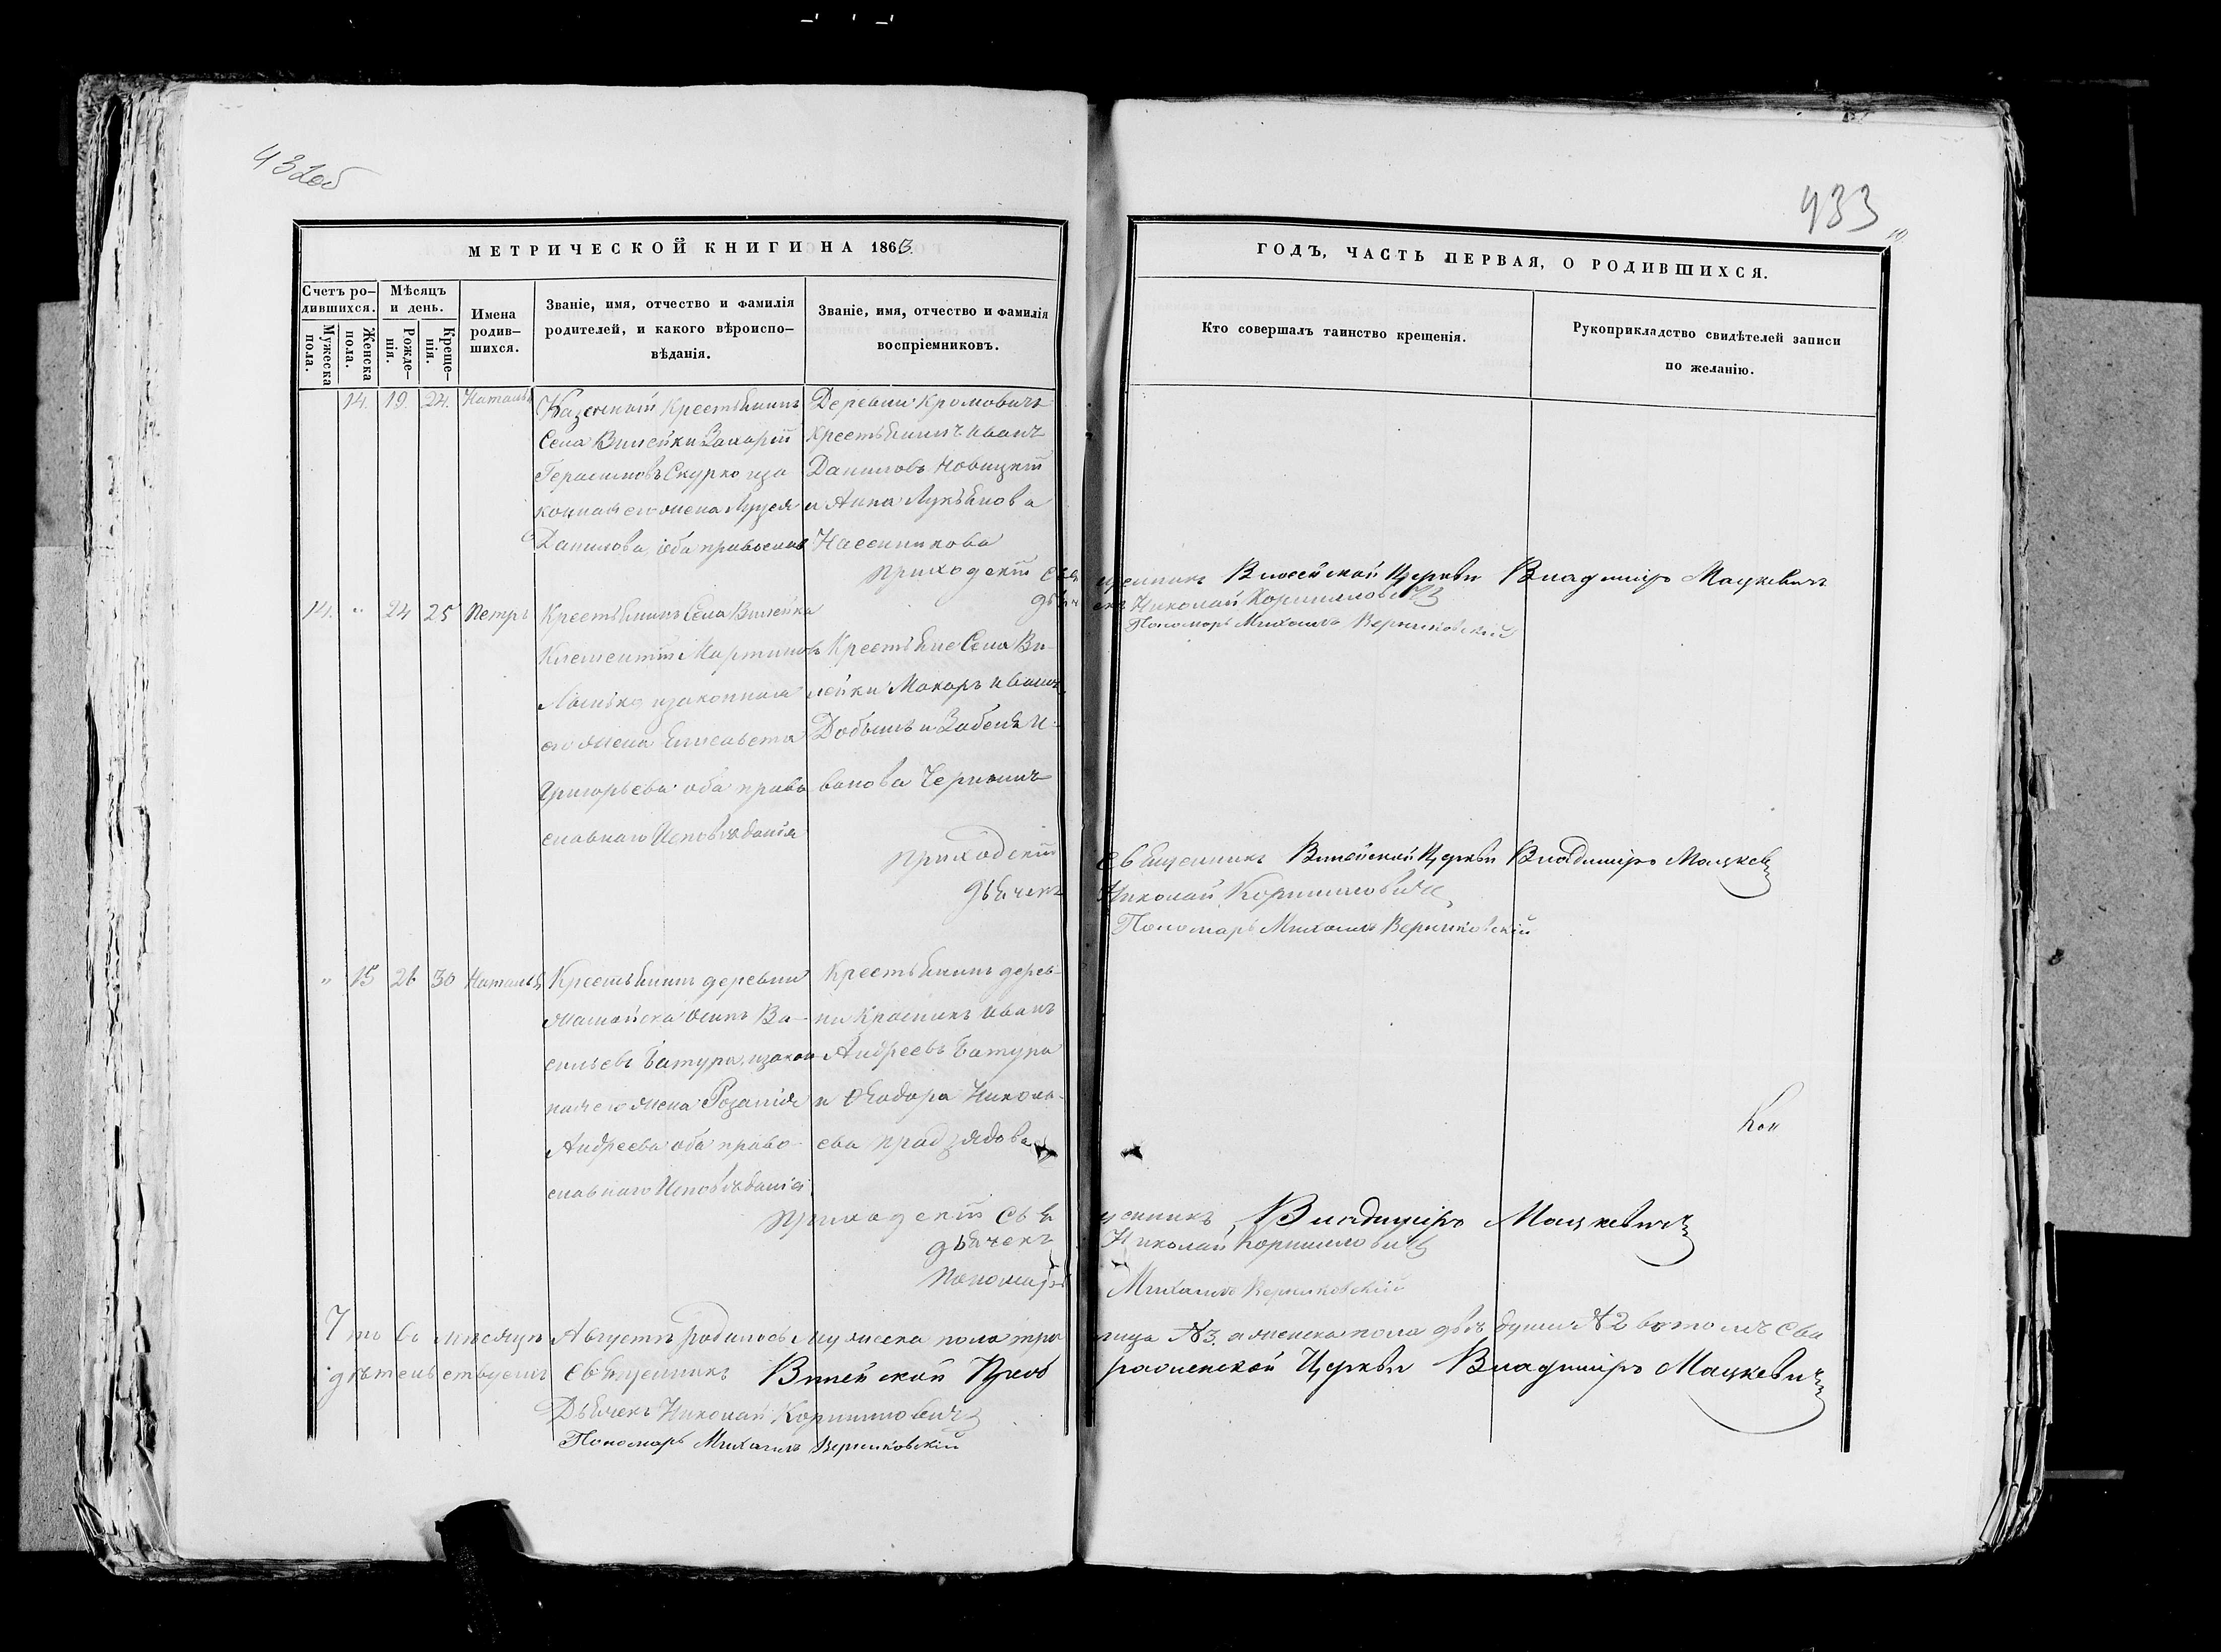 432об
433
МЕТРИЧЕСКОЙ КНИГИ НА 1863.
ГОДЪ, ЧАСТЬ ПЕРВАЯ, О РОДИВШИХСЯ.
Счетъ родившихся.
Мужеска пола.
Женска пола.
Мѣсяцъ и день.
Рожденія.
Крещенія.
Имена родившихся.
Званіе, имя, отчество и фамилія родителей, и какого вѣроисповѣданія.
Званіе, имя, отчество и фамилія воспріемниковъ.
Кто совершалъ таинство крещенія.
Рукоприкладство свидѣтелей записи по желанію.
14. 19. 24. Наталія
Казенный Крестьянинъ
Села Вилейки Захарій
Герасимовъ Скурко иза
конная его жена Луцея
Данилова, оба православ
Деревни Кромовичъ
крестьянинъ Иванъ
Даниловъ Новицкій
и Анна Лукьянова
Приходскій Священникъ Вилейской Церкви Владиміръ Мацкевичъ
дьячекъ Николай Корниловичъ
Пономарь Михаилъ Верниковскій
14. " 24 25 Петръ
Крестьянинъ Села Вилейки
Климентій Мартиновъ
изаконная
его жена Елисавета
Григорьева оба право
славнаго Исповѣданія
Крестьяне Села Ви-
лейки Макаръ Ивановъ
и
ванова
Приходскій Священникъ Вилейской Церкви Владиміръ Мацкев
дьячекъ Николай Корниловичъ
Пономарь Михаилъ Верниковскій
" 15 26 30 Наталія
Крестьянинъ деревни
Осипъ Ва-
сильевъ Батура, изакон
ная его жена Розалія
Андреева оба право-
славнаго Исповѣданія
Крестьянинъ дерев-
ни Красникъ Иванъ
Андреевъ Батура
и Ѳеодора Никола-
ева
Приходскій Священникъ Владиміръ Мацкевичъ
дьячекъ Николай Корниловичъ
Пономарь Михаилъ Верниковскій
Что въ мѣсяцѣ Августѣ родилось мужеска пола три лица №3. а женска пола двѣ души №2 въ томъ сви
дѣтельствуемъ Священникъ Вилейской Преображенской Церкви Владиміръ Мацкевичъ
Дьячекъ Николай Корниловичъ
Пономарь Михаилъ Верниковскій